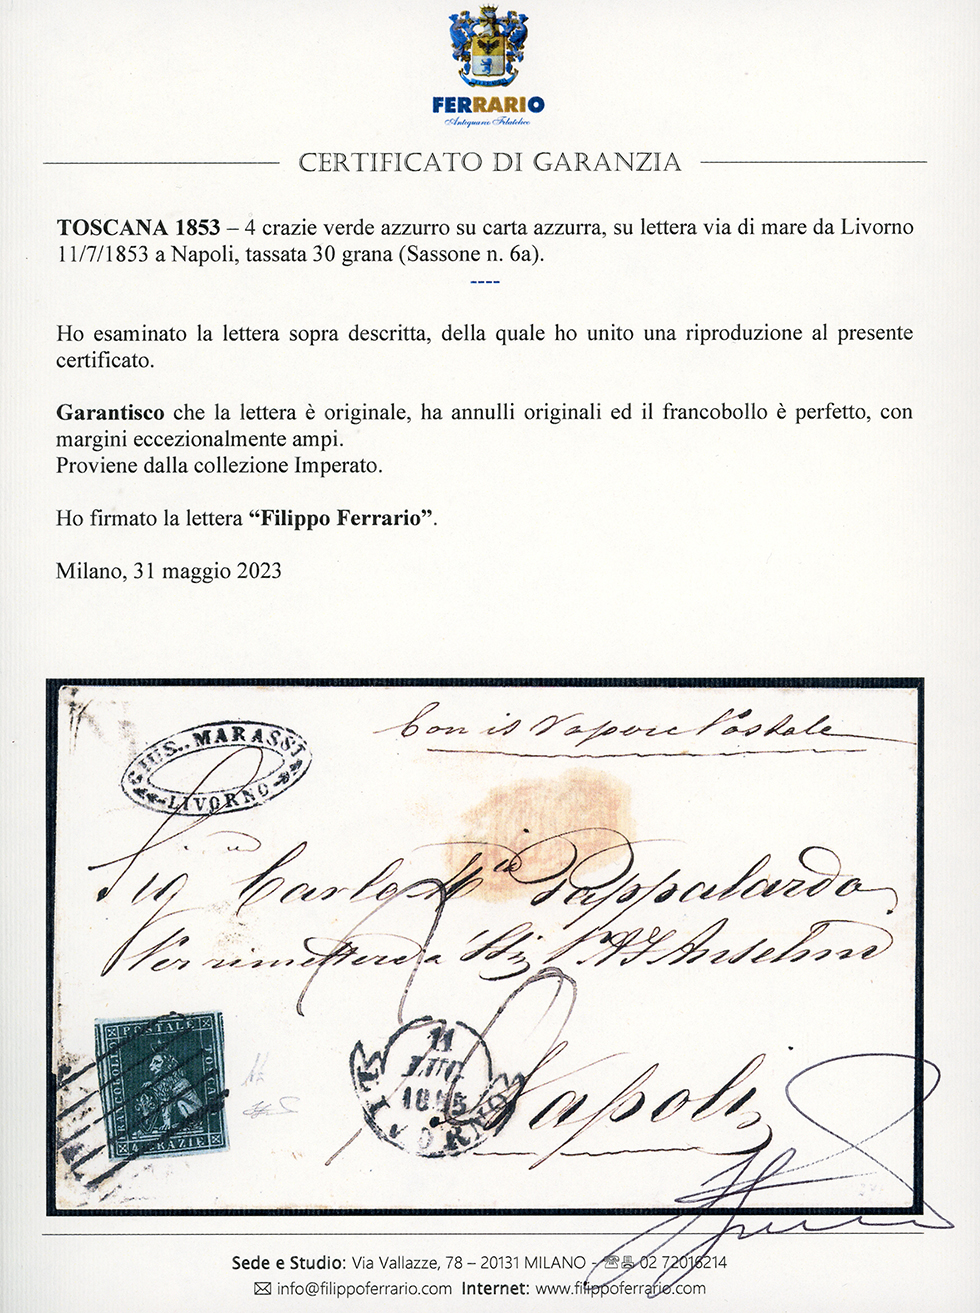 FERRARIO
Antiquario Filatelico
CERTIFICATO DI GARANZIA
TOSCANA 1853 – 4 crazie verde azzurro su carta azzurra, su lettera via di mare da Livorno
11/7/1853 a Napoli, tassata 30 grana (Sassone n. 6a).
----
Ho esaminato la lettera sopra descritta, della quale ho unito una riproduzione al presente
certificato.
Garantisco che la lettera è originale, ha annulli originali ed il francobollo è perfetto, con
margini eccezionalmente ampi.
Proviene dalla collezione Imperato.
Ho firmato la lettera “Filippo Ferrario”.
Milano, 31 maggio 2023
Con il Vapore Postale
GIUS. MARASSI
LIVORNO
Sig Carlo Mia Pappalardo
Per rimettere a
Napoli
FRANCOBOLLO
POSTALE
TOSCANO
4 CRAZIE
11
LUG.
LIVORNO
Sede e Studio: Via Vallazze, 78 – 20131 MILANO - 02 72016214
info@filippoferrario.com Internet: www.filippoferrario.com